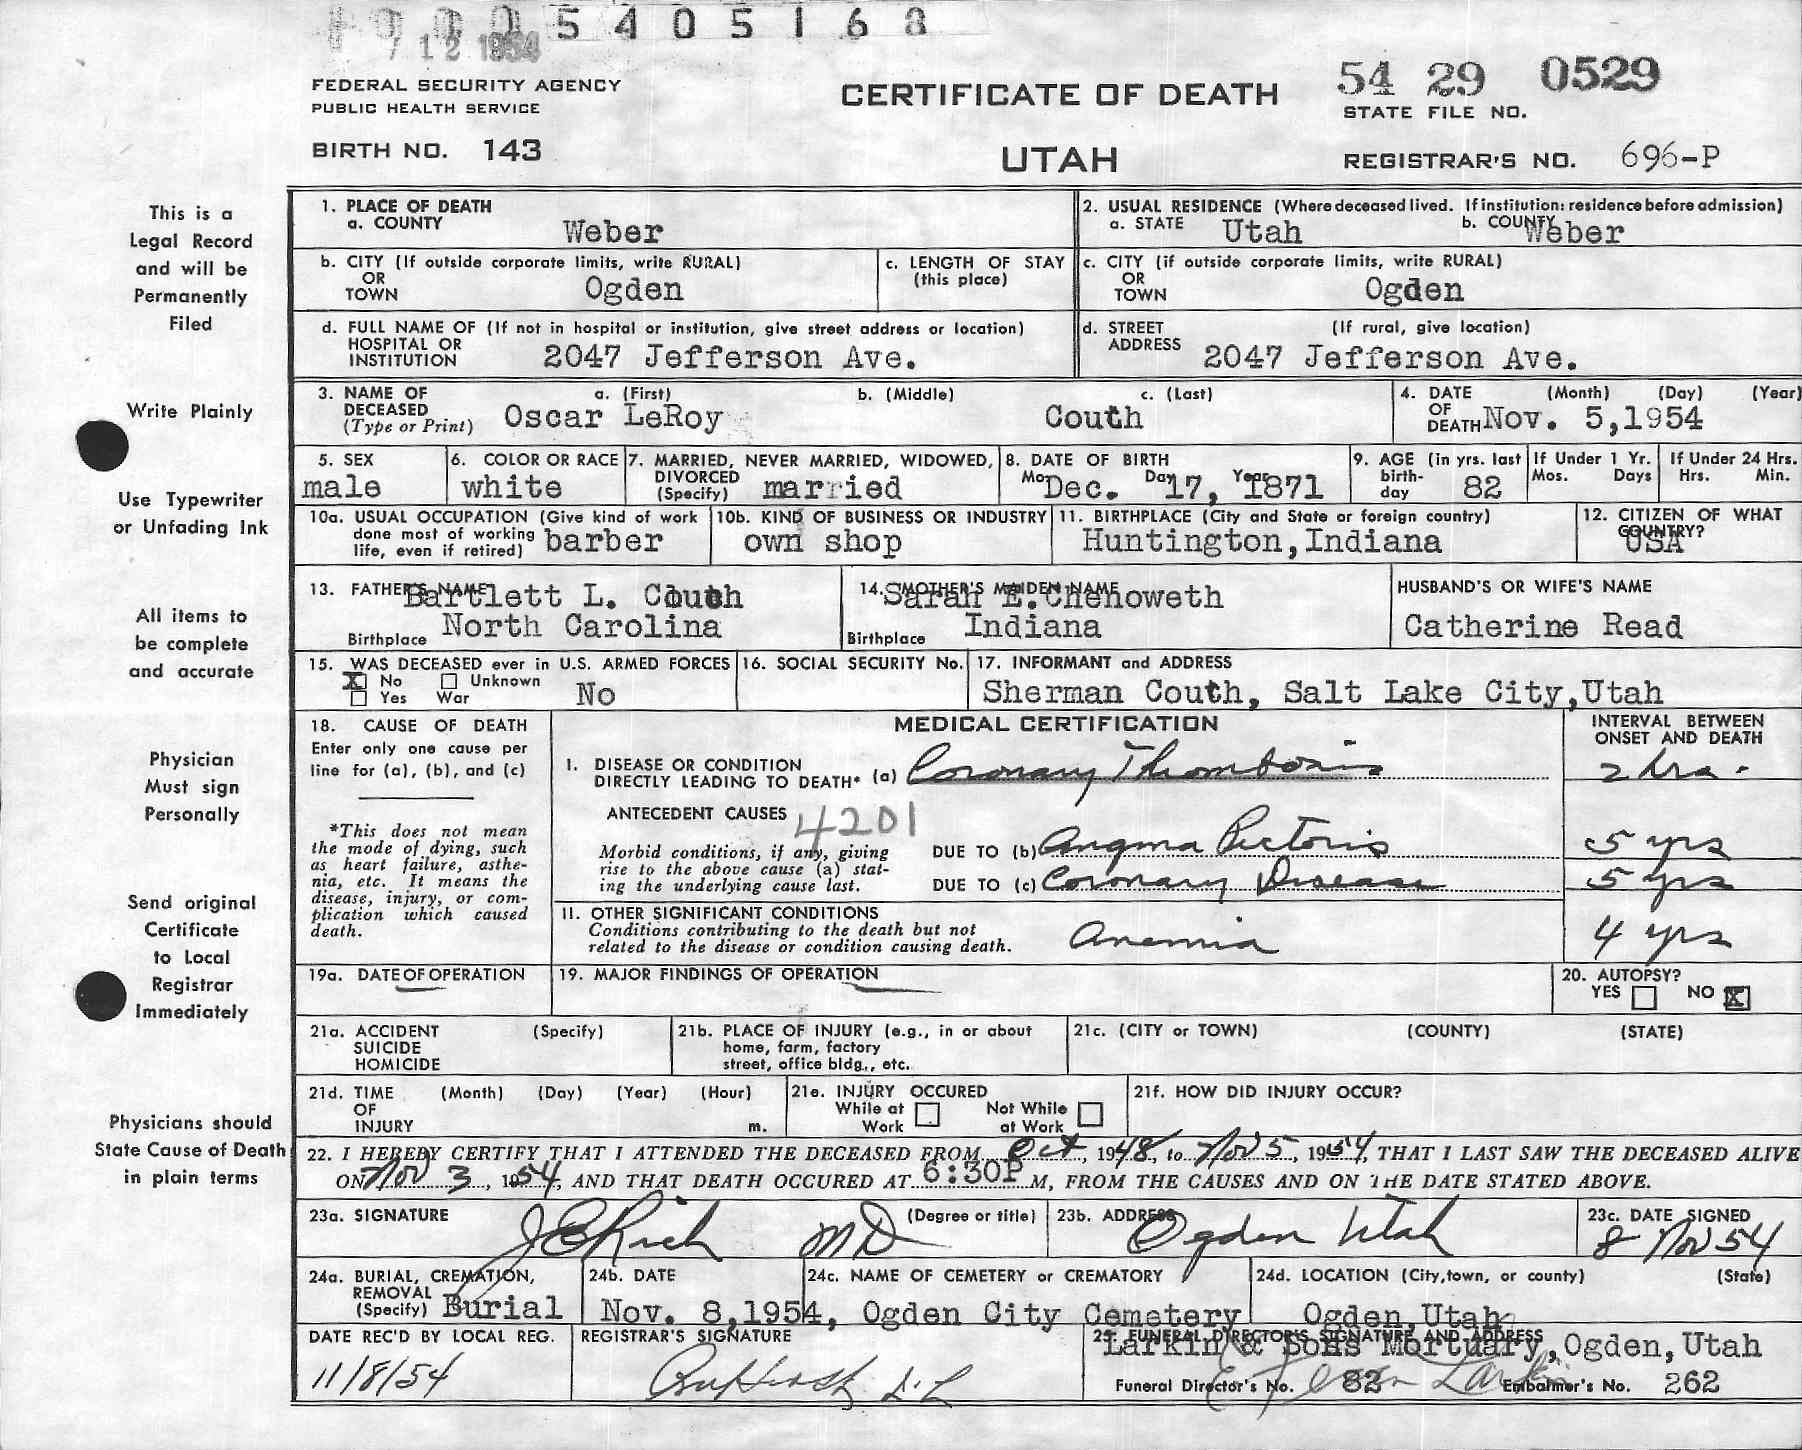 5 4 0 5 1 6 8
12 1954
FEDERAL SECURITY AGENCY
PUBLIC HEALTH SERVICE
BIRTH NO. 143
CERTIFICATE OF DEATH
UTAH
54 29 0529
STATE FILE NO.
REGISTRAR'S NO. 696-P
This is a
Legal Record
and will be
Permanently
Filed
Write Plainly
Use Typewriter
or Unfading Ink
All items to
be complete
and accurate
Physician
Must sign
Personally
Send original
Certificate
to Local
Registrar
Immediately
Physicians should
State Cause of Death
in plain terms
1. PLACE OF DEATH
a. COUNTY Weber
2. USUAL RESIDENCE (Where deceased lived. If institution: residence before admission)
a. STATE Utah b. COUNTY Weber
b. CITY (If outside corporate limits, write RURAL)
OR
TOWN Ogden
c. LENGTH OF STAY
(this place)
c. CITY (if outside corporate limits, write RURAL)
OR
TOWN Ogden
d. FULL NAME OF (If not in hospital or institution, give street address or location)
HOSPITAL OR
INSTITUTION 2047 Jefferson Ave.
d. STREET (If rural, give location)
ADDRESS 2047 Jefferson Ave.
3. NAME OF a. (First) b. (Middle) c. (Last)
DECEASED
(Type or Print) Oscar LeRoy Couth
4. DATE (Month) (Day) (Year)
OF
DEATH Nov. 5,1954
5. SEX
male
6. COLOR OR RACE
white
7. MARRIED, NEVER MARRIED, WIDOWED,
DIVORCED
(Specify) married
8. DATE OF BIRTH
Mo. Dec. Day 17, Year 1871
9. AGE (in yrs. last
birth-
day 82
If Under 1 Yr.
Mos. Days
If Under 24 Hrs.
Hrs. Min.
10a. USUAL OCCUPATION (Give kind of work
done most of working
life, even if retired) barber
10b. KIND OF BUSINESS OR INDUSTRY
own shop
11. BIRTHPLACE (City and State or foreign country)
Huntington,Indiana
12. CITIZEN OF WHAT
COUNTRY?
USA
13. FATHER'S NAME Bartlett L. Couth
Birthplace North Carolina
14. MOTHER'S MAIDEN NAME Sarah E.Chenoweth
Birthplace Indiana
HUSBAND'S OR WIFE'S NAME
Catherine Read
15. WAS DECEASED ever in U.S. ARMED FORCES
X No Unknown
Yes War No
16. SOCIAL SECURITY No.
17. INFORMANT and ADDRESS
Sherman Couth, Salt Lake City,Utah
18. CAUSE OF DEATH
Enter only one cause per
line for (a), (b), and (c)
*This does not mean
the mode of dying, such
as heart failure, asthe-
nia, etc. It means the
disease, injury, or com-
plication which caused
death.
MEDICAL CERTIFICATION
INTERVAL BETWEEN
ONSET AND DEATH
I. DISEASE OR CONDITION
DIRECTLY LEADING TO DEATH* (a) Coronary Thrombosis 2 hrs.
ANTECEDENT CAUSES 4201
Morbid conditions, if any, giving
rise to the above cause (a) stat-
ing the underlying cause last.
DUE TO (b) Angina Pectoris 5 yrs
DUE TO (c) Coronary Disease 5 yrs
II. OTHER SIGNIFICANT CONDITIONS
Conditions contributing to the death but not
related to the disease or condition causing death. Anemia 4 yrs
19a. DATE OF OPERATION
19. MAJOR FINDINGS OF OPERATION
20. AUTOPSY?
YES NO X
21a. ACCIDENT (Specify)
SUICIDE
HOMICIDE
21b. PLACE OF INJURY (e.g., in or about
home, farm, factory
street, office bldg., etc.
21c. (CITY or TOWN) (COUNTY) (STATE)
21d. TIME (Month) (Day) (Year) (Hour)
OF
INJURY m.
21e. INJURY OCCURED
While at Not While
Work at Work
21f. HOW DID INJURY OCCUR?
22. I HEREBY CERTIFY THAT I ATTENDED THE DECEASED FROM Oct, 1948, to Nov 5, 1954, THAT I LAST SAW THE DECEASED ALIVE
ON Nov 3, 1954, AND THAT DEATH OCCURED AT 6:30P M, FROM THE CAUSES AND ON THE DATE STATED ABOVE.
23a. SIGNATURE (Degree or title)
J E Rich MD
23b. ADDRESS
Ogden Utah
23c. DATE SIGNED
8 Nov 54
24a. BURIAL, CREMATION,
REMOVAL
(Specify) Burial
24b. DATE
Nov. 8,1954,
24c. NAME OF CEMETERY or CREMATORY
Ogden City Cemetery
24d. LOCATION (City,town, or county) (State)
Ogden,Utah
DATE REC'D BY LOCAL REG.
11/8/54
REGISTRAR'S SIGNATURE
25. FUNERAL DIRECTOR'S SIGNATURE AND ADDRESS
Larkin & Sons Mortuary,Ogden,Utah
Funeral Director's No. 82 Embalmer's No. 262